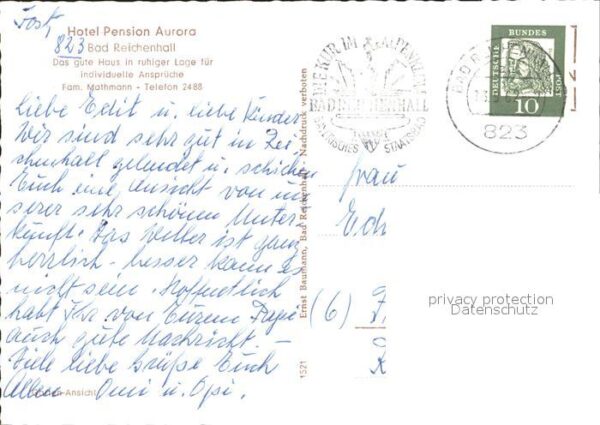 Post
Hotel Pension Aurora
823 Bad Reichenhall
Das gute Haus in ruhiger Lage für
individuelle Ansprüche
Fam. Mathmann - Telefon 2488
liebe Edit u. liebe Kinder
Wir sind sehr gut in Rei-
chenhall gelandet u. schicken
Euch eine Ansicht von un
serer sehr schönen Unter-
kunft. Das Wetter ist ganz
herrlich - besser kann es
nicht sein. Hoffentlich
habt Ihr von Eurem Papi
auch gute Nachricht. -
Viele liebe Grüße Euch
Allen Omi u. Opi.
-Ansicht
1521
Ernst Baumann, Bad Reichenhall - Nachdruck verboten
DIE KUR IM ALPENKLIMA
BAD REICHENHALL
BAYERISCHES STAATSBAD
DEUTSCHE BUNDES POST
10
BAD REICHENHALL
823
Frau
Edi
(6) F
privacy protection
Datenschutz